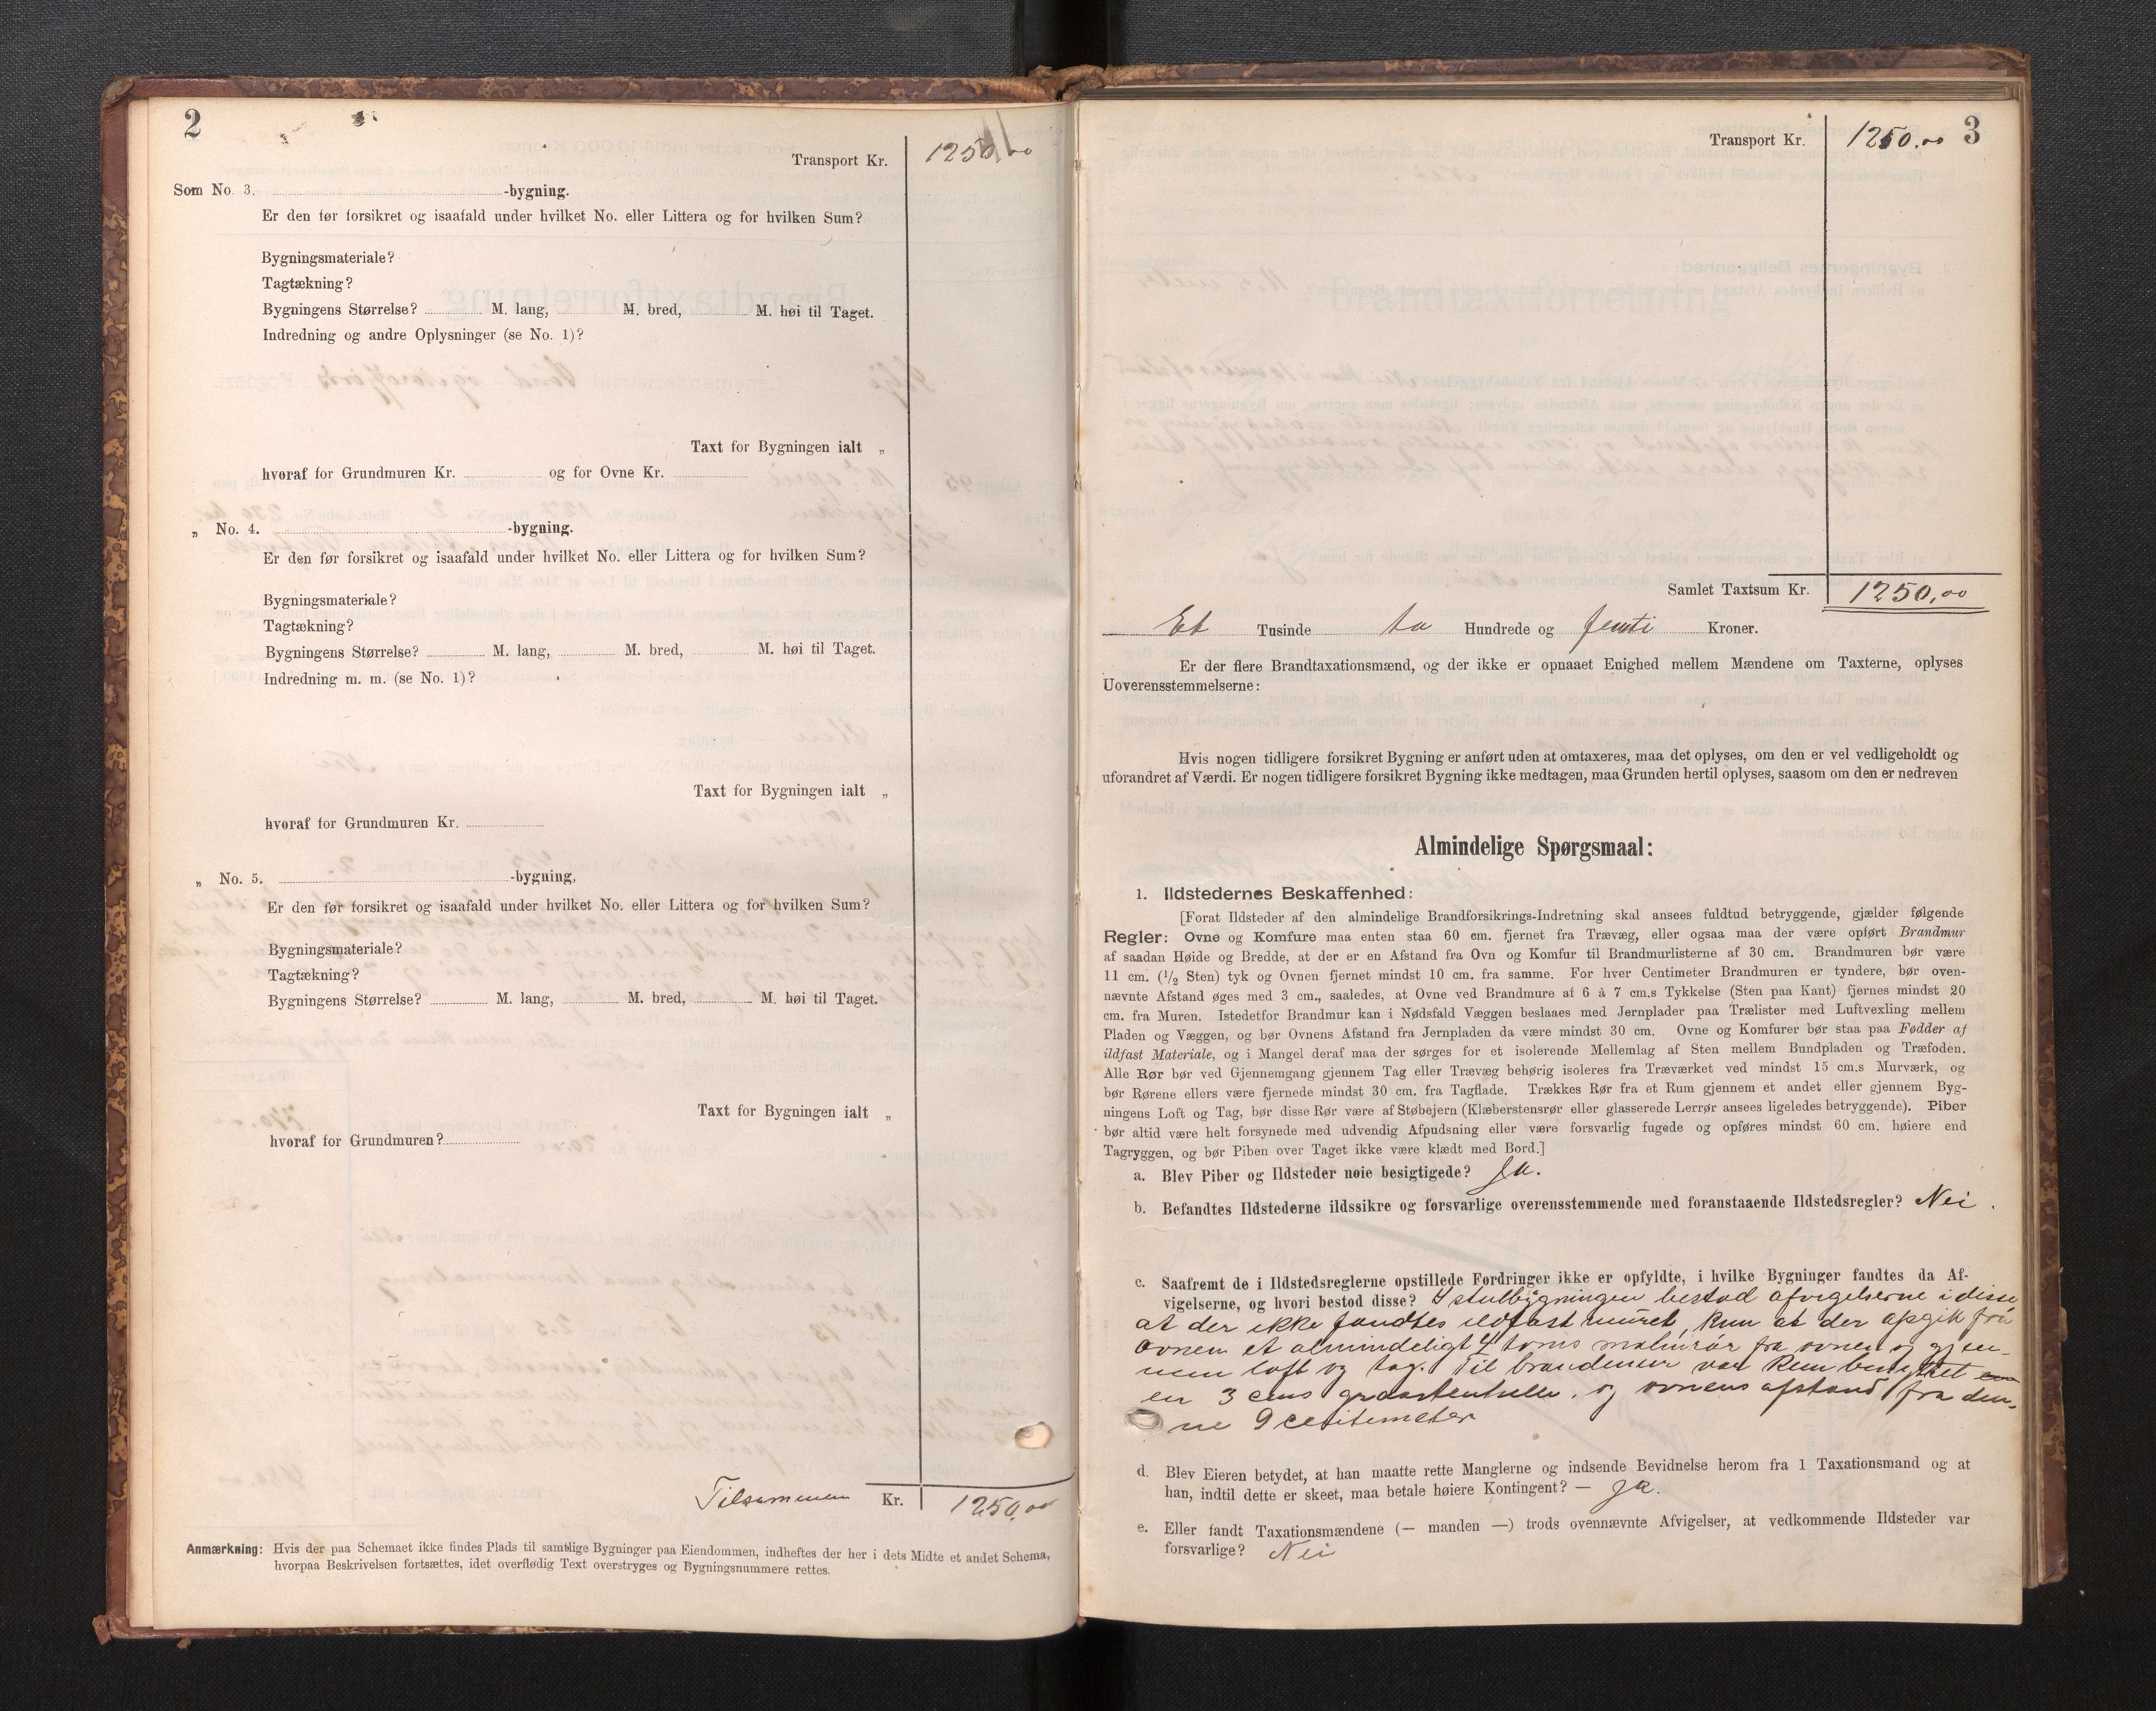 2
Transport Kr. 1250,00
Som No. 3. -bygning.
Er den før forsikret og isaafald under hvilket No. eller Littera og for hvilken Sum?
Bygningsmateriale?
Tagtækning?
Bygningens Størrelse? M. lang, M. bred, M. høi til Taget.
Indredning og andre Oplysninger (se No. 1)?
Taxt for Bygningen ialt „
hvoraf for Grundmuren Kr. og for Ovne Kr.
„ No. 4. -bygning.
Er den før forsikret og isaafald under hvilket No. eller Littera og for hvilken Sum?
Bygningsmateriale?
Tagtækning?
Bygningens Størrelse? M. lang, M. bred, M. høi til Taget.
Indredning m. m. (se No. 1)?
Taxt for Bygningen ialt „
hvoraf for Grundmuren Kr.
„ No. 5. -bygning,
Er den før forsikret og isaafald under hvilket No. eller Littera og for hvilken Sum?
Bygningsmateriale?
Tagtækning?
Bygningens Størrelse? M. lang, M. bred, M. høi til Taget.
Taxt for Bygningen ialt „
hvoraf for Grundmuren?
Tilsammen Kr. 1250,00
Anmærkning: Hvis der paa Schemaet ikke findes Plads til samtlige Bygninger paa Eiendommen, indheftes der her i dets Midte et andet Schema,
hvorpaa Beskrivelsen fortsættes, idet overflødig Text overstryges og Bygningsnummere rettes.
3
Transport Kr. 1250.00
Samlet Taxtsum Kr. 1250,00
Et Tusinde to Hundrede og femti Kroner.
Er der flere Brandtaxationsmænd, og der ikke er opnaaet Enighed mellem Mændene om Taxterne, oplyses
Uoverensstemmelserne:
Hvis nogen tidligere forsikret Bygning er anført uden at omtaxeres, maa det oplyses, om den er vel vedligeholdt og
uforandret af Værdi. Er nogen tidligere forsikret Bygning ikke medtagen, maa Grunden hertil oplyses, saasom om den er nedreven
Almindelige Spørgsmaal:
1. Ildstedernes Beskaffenhed:
[Forat Ildsteder af den almindelige Brandforsikrings-Indretning skal ansees fuldtud betryggende, gjælder følgende
Regler: Ovne og Komfure maa enten staa 60 cm. fjernet fra Trævæg, eller ogsaa maa der være opført Brandmur
af saadan Høide og Bredde, at der er en Afstand fra Ovn og Komfur til Brandmurlisterne af 30 cm. Brandmuren bør være
11 cm. (1/2 Sten) tyk og Ovnen fjernet mindst 10 cm. fra samme. For hver Centimeter Brandmuren er tyndere, bør oven-
nævnte Afstand øges med 3 cm., saaledes, at Ovne ved Brandmure af 6 à 7 cm.s Tykkelse (Sten paa Kant) fjernes mindst 20
cm. fra Muren. Istedetfor Brandmur kan i Nødsfald Væggen beslaaes med Jernplader paa Trælister med Luftvexling mellem
Pladen og Væggen, og bør Ovnens Afstand fra Jernpladen da være mindst 30 cm. Ovne og Komfurer bør staa paa Fødder af
ildfast Materiale, og i Mangel deraf maa der sørges for et isolerende Mellemlag af Sten mellem Bundpladen og Træfoden.
Alle Rør bør ved Gjennemgang gjennem Tag eller Trævæg behørig isoleres fra Træværket ved mindst 15 cm.s Murværk, og
bør Rørene ellers være fjernede mindst 30 cm. fra Tagflade. Trækkes Rør fra et Rum gjennem et andet eller gjennem Byg-
ningens Loft og Tag, bør disse Rør være af Støbejern (Klæberstensrør eller glasserede Lerrør ansees ligeledes betryggende). Piber
bør altid være helt forsynede med udvendig Afpudsning eller være forsvarlig fugede og opføres mindst 60 cm. høiere end
Tagryggen, og bør Piben over Taget ikke være klædt med Bord.]
a. Blev Piber og Ildsteder nøie besigtigede? Ja.
b. Befandtes Ildstederne ildssikre og forsvarlige overensstemmende med foranstaaende Ildstedsregler? Nei.
c. Saafremt de i Ildstedsreglerne opstillede Fordringer ikke er opfyldte, i hvilke Bygninger fandtes da Af-
vigelserne, og hvori bestod disse? I stulbygningen bestod afvigelserne i disse
at der ikke fandtes ildfast muret, kun at der opgik fra
ovnen et almindeligt 4 toms malmrør fra ovnen og gjen-
nem loft og tag. Til brandmur var kun benyttet en
en 3 cms graastenhelle, og ovnens afstand fra den-
ne 9 centimeter
d. Blev Eieren betydet, at han maatte rette Manglerne og indsende Bevidnelse herom fra 1 Taxationsmand og at
han, indtil dette er skeet, maa betale høiere Kontingent? — Ja.
e. Eller fandt Taxationsmændene (— manden —) trods ovennævnte Afvigelser, at vedkommende Ildsteder var
forsvarlige? Nei